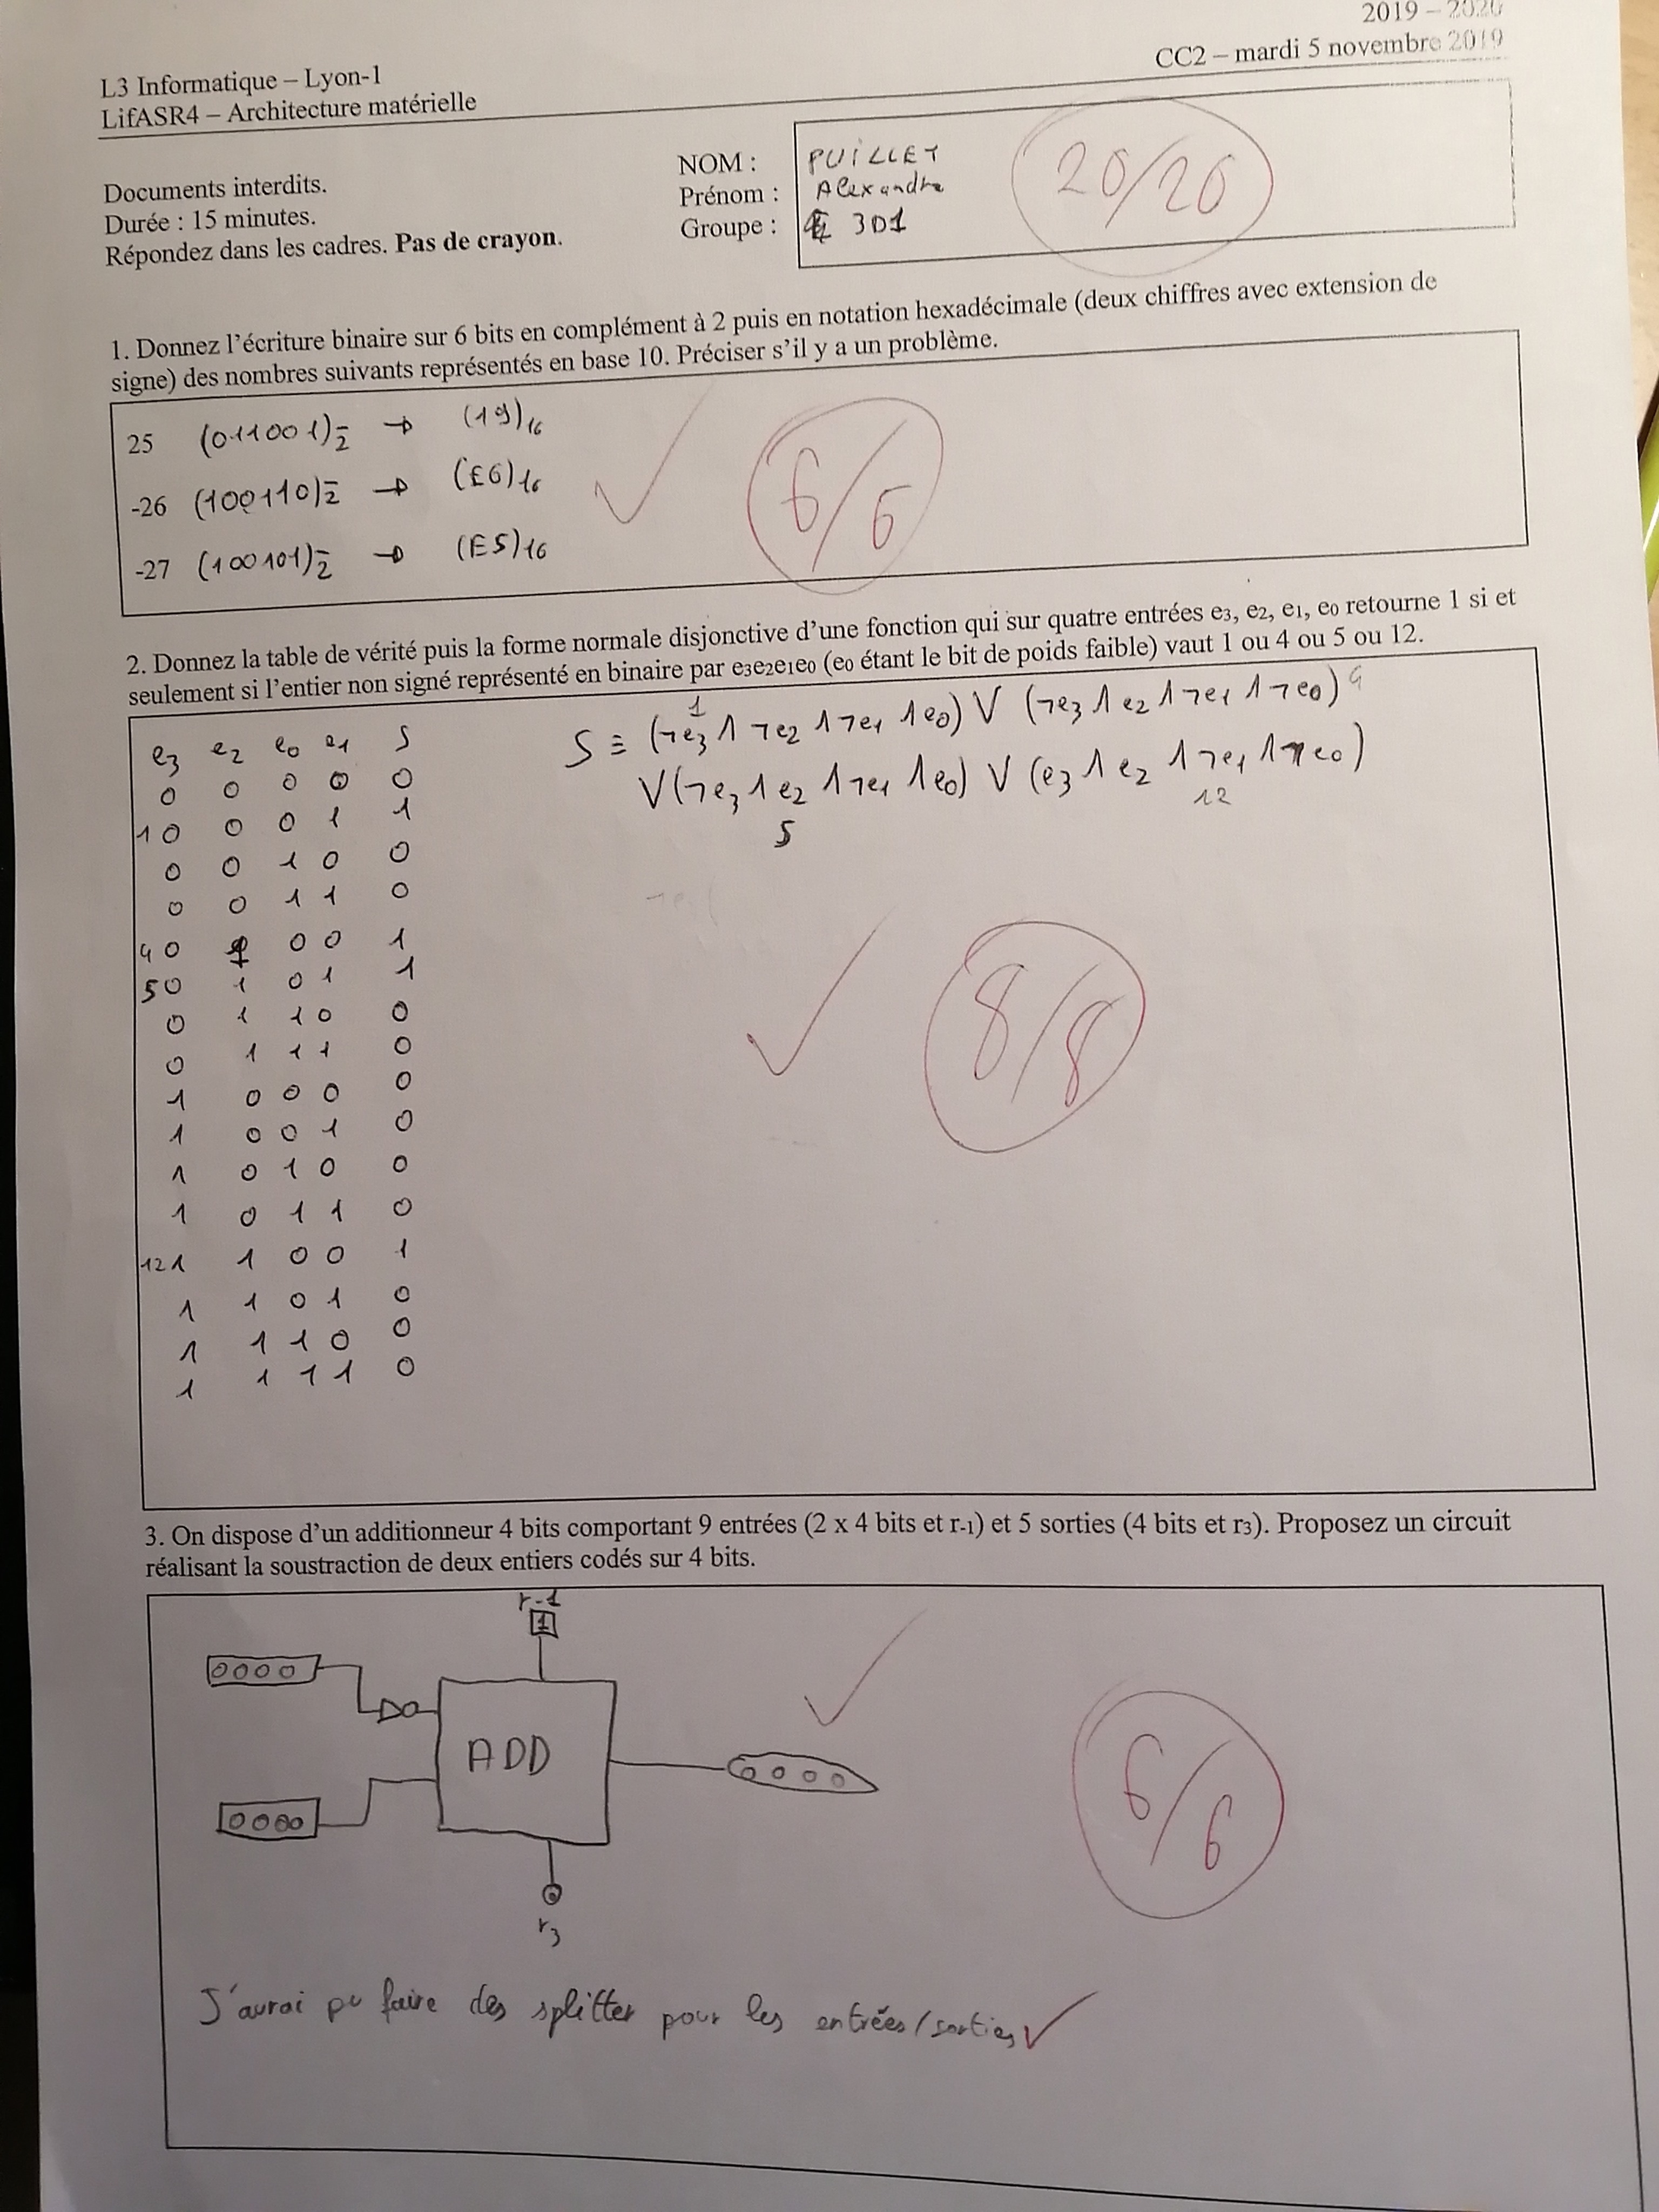 2019 – 2020
CC2 – mardi 5 novembre 2019
L3 Informatique – Lyon-1
LifASR4 – Architecture matérielle
Documents interdits.
Durée : 15 minutes.
Répondez dans les cadres. Pas de crayon.
NOM : PUILLET
Prénom : Alexandre
Groupe : 301
20/20
1. Donnez l’écriture binaire sur 6 bits en complément à 2 puis en notation hexadécimale (deux chiffres avec extension de
signe) des nombres suivants représentés en base 10. Préciser s’il y a un problème.
25 (011001)2̅ → (19)16
-26 (100110)2̅ → (E6)16
-27 (100101)2̅ → (E5)16
6/6
2. Donnez la table de vérité puis la forme normale disjonctive d’une fonction qui sur quatre entrées e3, e2, e1, e0 retourne 1 si et
seulement si l’entier non signé représenté en binaire par e3e2e1e0 (e0 étant le bit de poids faible) vaut 1 ou 4 ou 5 ou 12.
1
S ≡ (¬e3 ∧ ¬e2 ∧ ¬e1 ∧ e0) ∨ (¬e3 ∧ e2 ∧ ¬e1 ∧ ¬e0) 4
∨ (¬e3 ∧ e2 ∧ ¬e1 ∧ e0) ∨ (e3 ∧ e2 ∧ ¬e1 ∧ ¬e0)
5 12
e3 e2 e0 e1 S
0 0 0 0 0
1 0 0 0 1 1
0 0 1 0 0
0 0 1 1 0
4 0 1 0 0 1
5 0 1 0 1 1
0 1 1 0 0
0 1 1 1 0
1 0 0 0 0
1 0 0 1 0
1 0 1 0 0
1 0 1 1 0
12 1 1 0 0 1
1 1 0 1 0
1 1 1 0 0
1 1 1 1 0
8/8
3. On dispose d’un additionneur 4 bits comportant 9 entrées (2 x 4 bits et r-1) et 5 sorties (4 bits et r3). Proposez un circuit
réalisant la soustraction de deux entiers codés sur 4 bits.
r-1
1
0000
ADD
0000
0000
r3
6/6
J'aurai pu faire des splitter pour les entrées/sorties